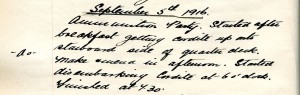 September 5th 1916.
Ammunition Party. Started after
breakfast getting cordite up onto
- do - starboard side of quarter deck.
Make amend in afternoon. Started
disembarking Cordite at 6 o'clock.
Finished at 7.30.